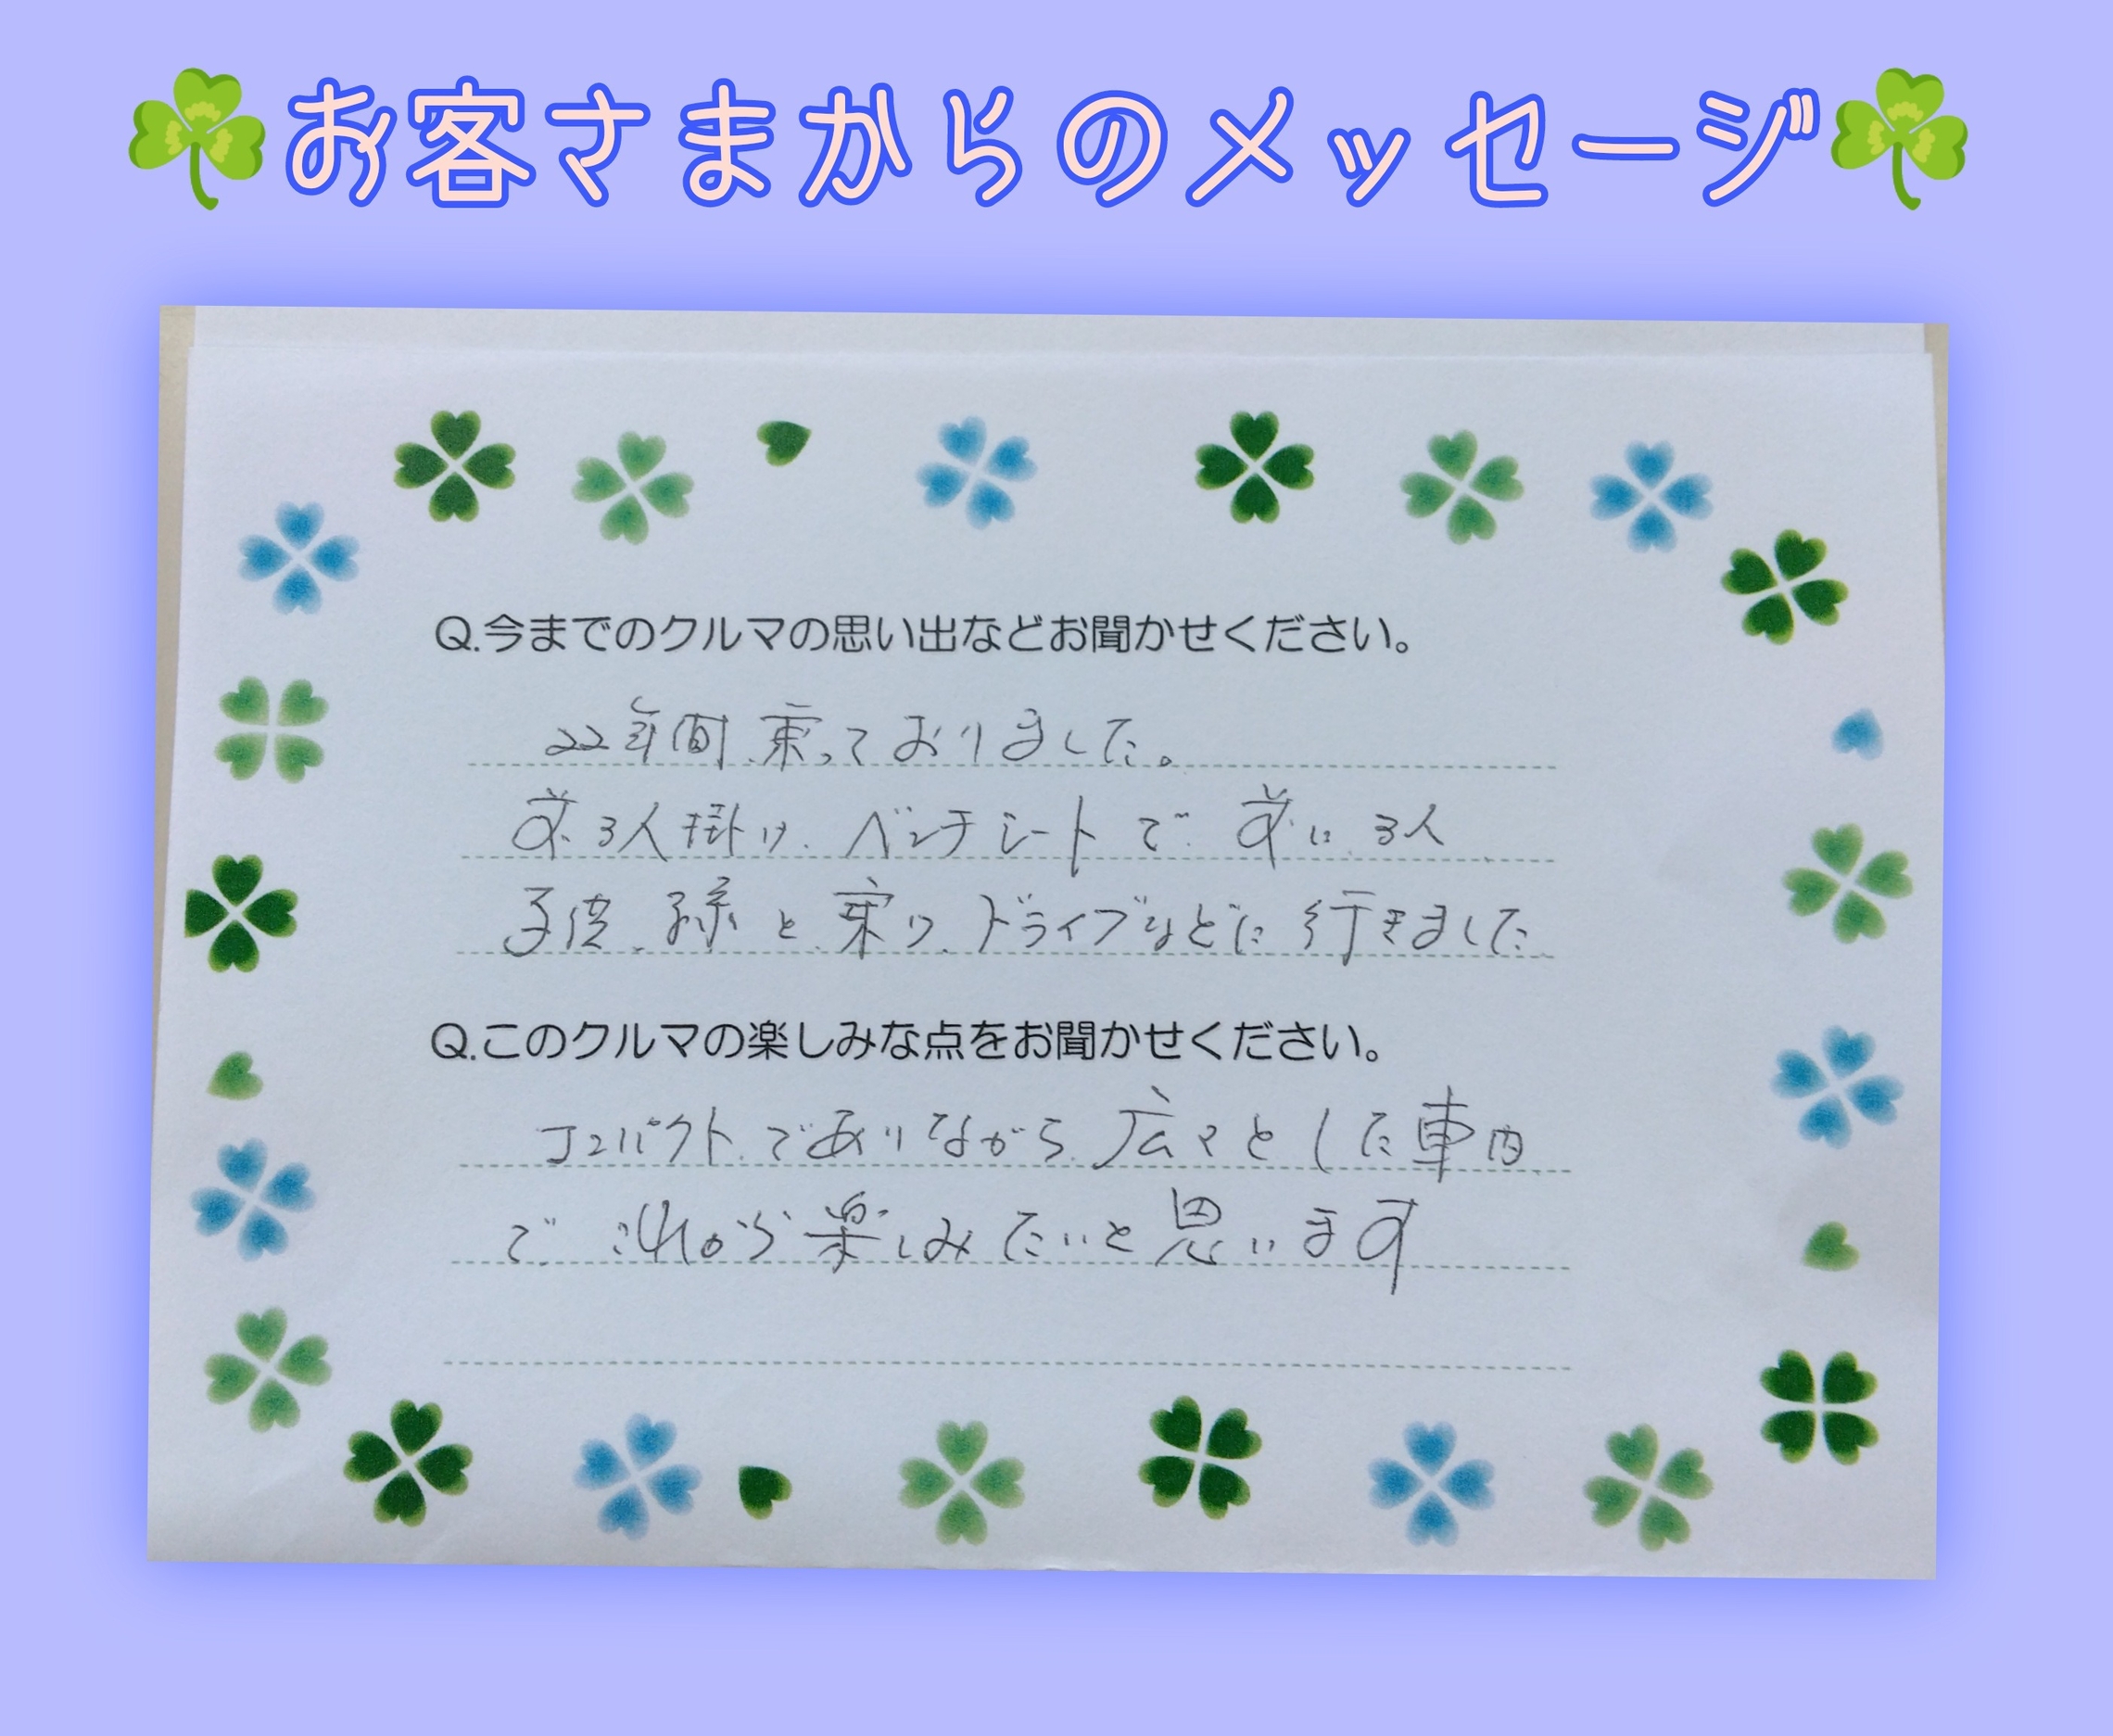 お客さまからのメッセージ
Q.今までのクルマの思い出などお聞かせください。
22年間、乗っておりました。
前3人掛け、ベンチシートで 前に 3人
子供、孫と乗り、ドライブなどに行きました
Q.このクルマの楽しみな点をお聞かせください。
コンパクトでありながら、広々とした車内
で、これから楽しみたいと思います